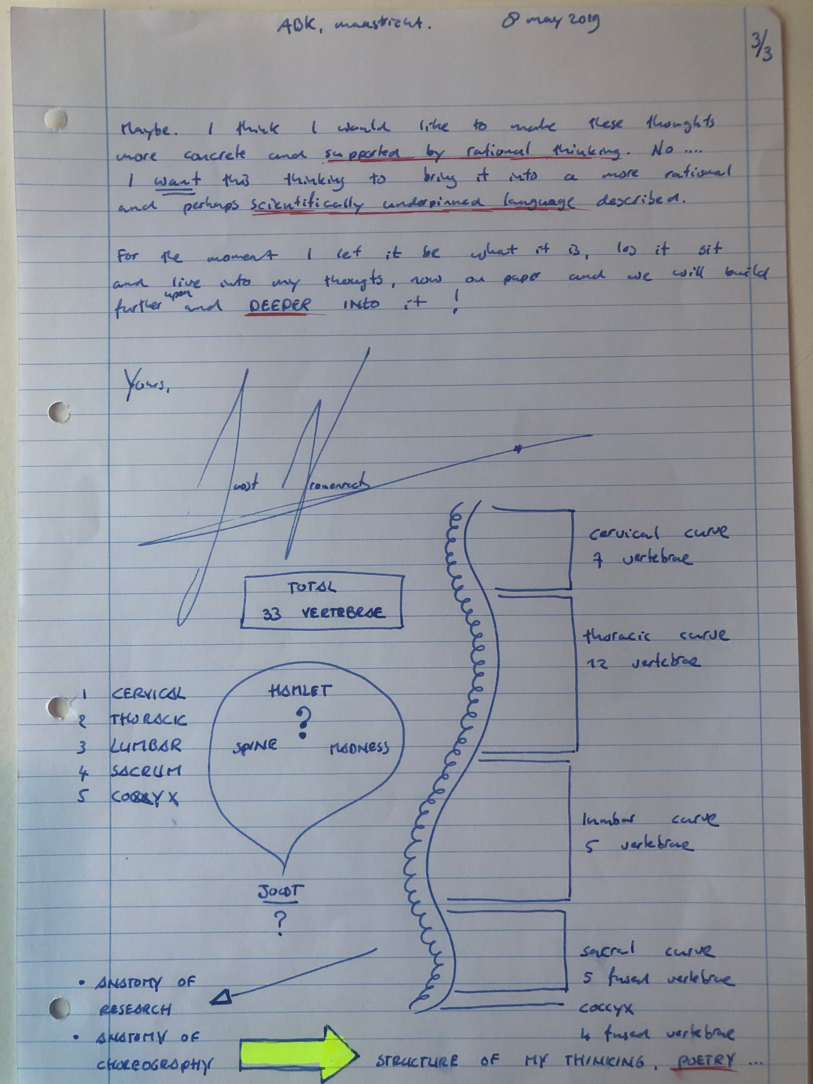 ABK, maastricht. 8 may 2019
3/3
Maybe. I think I would like to make these thoughts
more concrete and supported by rational thinking. No ....
I want this thinking to bring it into a more rational
and perhaps scientifically underpinned language described.
For the moment I let it be what it is, let it sit
and live into my thougts, now on paper and we will build
further upon and DEEPER INTO it !
Yours,
Joost
TOTAL
33 VERTEBRAE
cervical curve
7 vertebrae
thoracic curve
12 vertebrae
lumbar curve
5 vertebrae
sacral curve
5 fused vertebrae
coccyx
4 fused vertebrae
1 CERVICAL
2 THORACIC
3 LUMBAR
4 SACRUM
5 COCCYX
HAMLET
?
SPINE MADNESS
JOOST
?
• ANATOMY OF
RESEARCH
• ANATOMY OF
CHOREOGRAPHY
STRUCTURE OF MY THINKING, POETRY ...